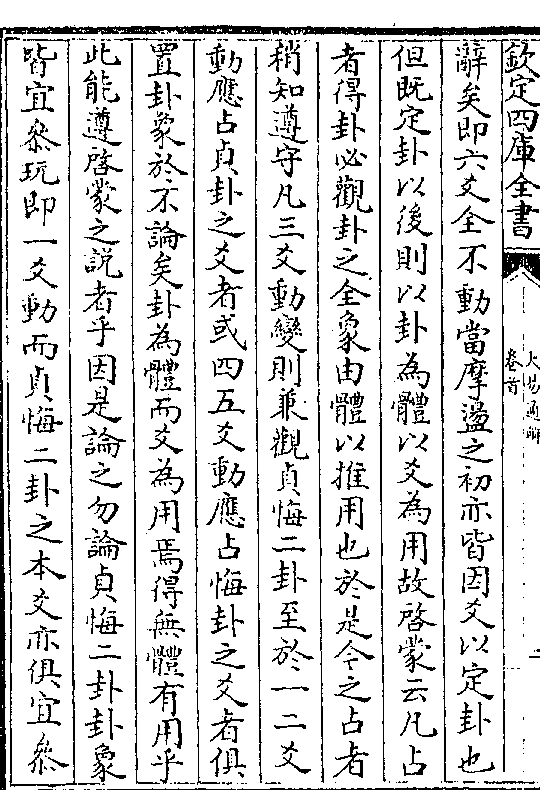 欽定四庫全書
大易通解
卷首
辭矣即六爻全不動當摩盪之初亦皆因爻以定卦也
但既定卦以後則以卦為體以爻為用故啓蒙云凡占
者得卦必觀卦之全象由體以推用也於是今之占者
稍知遵守凡三爻動變則兼觀貞悔二卦至於一二爻
動應占貞卦之爻者或四五爻動應占悔卦之爻者俱
置卦象於不論矣卦為體而爻為用焉得無體有用乎
此能遵啓蒙之説者乎因是論之勿論貞悔二卦卦象
皆宜叅玩即一爻動而貞悔二卦之本爻亦俱宜叅